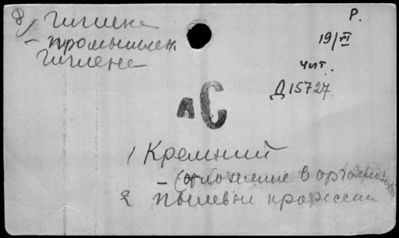 8) Гигиена
- промышлен
гигиена
Р.
19/VI
чит.
Д15727
АС
1 Кремний
(отложение в организме
2 Пылевои профессии